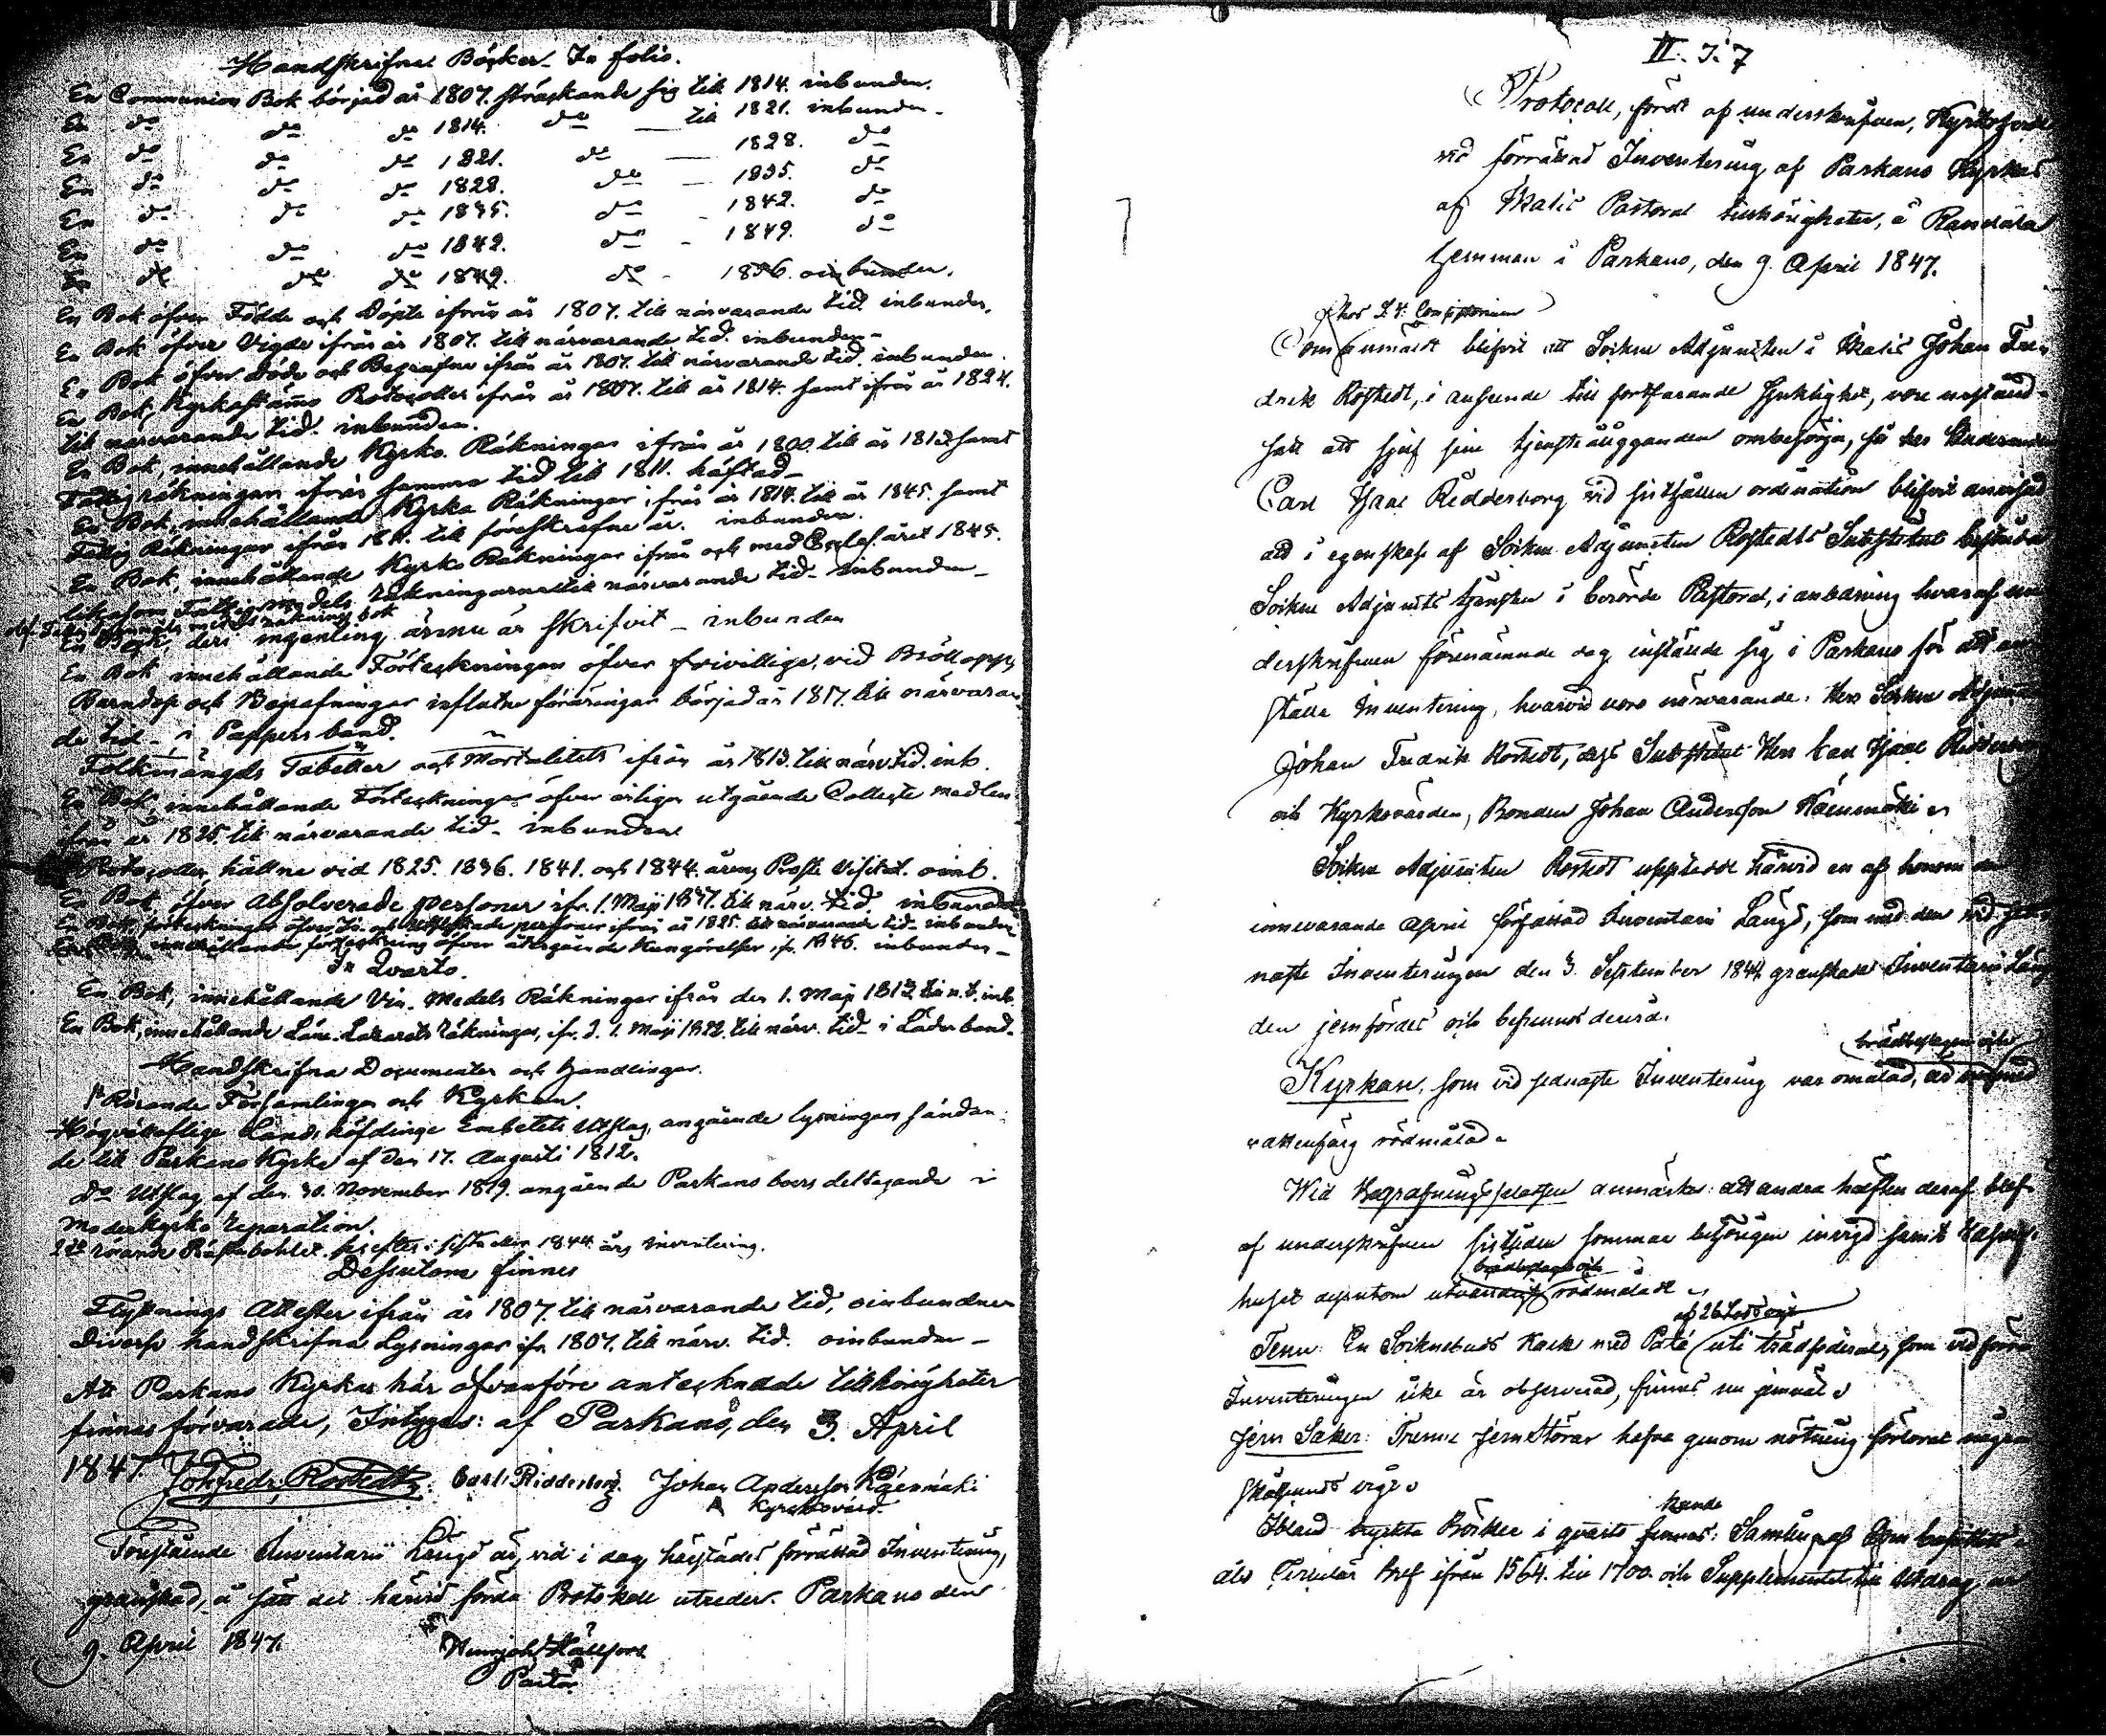 Handskrifne Böcker In folio.
En Communion Bok börjad år 1807. sträckande sig till 1814. inbunden.
En do do do 1814. do — till 1821. inbunden.
En do do do 1821. do — 1828. do
En do do do 1828. do — 1835. do
En do do do 1835. do - 1842. do
En do do do 1842. do - 1849. do
En do do do 1849. do - 1856. oinbunden.
En Bok öfver Födde och Döpte ifrån år 1807. till närvarande tid. inbunden.
En Bok öfver Vigde ifrån år 1807. till närvarande tid. inbunden.
En Bok öfver Döde och Begrafne ifrån år 1807. till närvarande tid. inbunden.
En Bok, Kyrkostämmo Protocoller ifrån år 1807. till år 1814. samt ifrån år 1824.
till närvarande tid. inbunden.
En Bok, innehållande Kyrko Räkningar ifrån år 1800. till år 1813 samt
Fattigräkningar ifrån samma tid till 1811. häftad
En Bok, innehållande Kyrko Räkningar ifrån år 1814. till år 1845. samt
Fattig Räkningar ifrån 1811. till föreskrefne år. inbunden.
En Bok, innehållande Kyrko Räkningar ifrån och med året 1845.
likasom Fattig medels räkningarne till närvarande tid inbunden
En Bok, deri ingenting ännu är skrifvit - inbunden
En Bok innehållande Förteckningar öfver frivillige, vid Bröllopp,
Barndop och Begrafningar influtne föräringar börjad år 1817. till närvaran
de tid i Pappers band.
Folkmängds Tabeller och Mortalitets ifrån år 1813. till närv. tid. inb.
En Bok innehållande Förteckningar öfver årligen utgående Collecte medlen
från år 1825. till närvarande tid inbunden
Protocoller hållne vid 1825. 1836. 1841. och 1844. årens Prosts Visitat. oinb.
En Bok öfver Absolverade personer ifr. 1. Maji 1847. till närv. tid. inbunden
En Bok, förteckningar öfver In- och utflyttade personer ifrån år 1825. till närvarande tid inbunden
En Bok innehållande förteckning öfver Kungörelser ifr. 1846. inbunden
In Qvarto.
En Bok, innehållande Vin-Medels Räkningar ifrån den 1. Maji 1813 till n.t. inb.
En Bok, innehållande Läne-Lazarets räkningar, ifr. d. 1. Maji 1822. till närv. tid i Läder band.
Handskrifna Documenter och Handlingar.
1o Rörande Församlingen och Kyrkan.
Högvälbeflige Lands höfdinge Embetets Utslag, angående lysningars sändan
de till Parkano Kyrka af den 17. Augusti 1812.
Do Utslag af den 30. November 1819. angående Parkano boers deltagande i
Moderkyrko reparation.
2do rörande 1844 års Inventering.
Dessutom finnes
Flyttnings Attester ifrån år 1807. till närvarande tid, oinbundne
Diverse handskrifna Lysningar ifr. 1807. till närv. tid. oinbundne
Att Parkano Kyrkas här ofvanföre antecknade tillhörigheter
finnas förvarade, Intygas: af Parkano, den 3. April
1847. Joh. Fredr. Rostedt. Carl I Ridderborg. Johan Andersson Käenmäki
Kyrkovärd.
Förestående Inventarii Längd är, vid i dag härstädes förrättad Inventering,
granskad, å sätt det härvid förda Protokoll utreder. Parkano den
9. April 1847.
Pastor
II. I. 7
Protocoll, fördt af underskrifven, Kyrkoherde
vid förrättad Inventering af Parkano Kyrkas
af Ikalis Pastorat tillhörigheter, å Randala
hemman i Parkano, den 9. April 1847.
Som anmäldt blifvit att Sockne Adjuncten i Ikalis Johan Fre-
drik Rostedt, i anseende till fortfarande sjuklighet, vore urståndd
satt att sjelf sine tjensteåligganden ombesörja, så
Carl Isaac Ridderborg vid ordination blifvit anvisad
att i egenskap af Sockne Adjuncten Rostedts Substitut bestrida
Sockne Adjuncts tjensten i berörde Pastorat, i anledning hvaraf un
derskrifven förenämnde dag inställde sig i Parkano för att an
ställa Inventering, hvarvid voro närvarande: Herr Sockne Adjuncten
Johan Fredrik Rostedt, dess Substitut Herr Carl Isaac Ridderborg
och Kyrkovärden, Bonden Johan Andersson Käenmäki
Sockne Adjuncten Rostedt uppteede härvid en af honom den
innevarande April författad Inventarii Längd, som med den vid sed
naste Inventeringen den 3. September 1844 granskade Inventarii Läng
den jemfördes och befunnits
brädbeslagen och
Kyrkan, som vid sednaste Inventering var omålad, är
vattenfärg rödmålad.
Wid Begrafningsplatsen anmärkes: att andra hälften deraf blef
af underskrifven sistliden sommar behörigen invigd samt
huset dessutom utvändigt rödmåladt
af 26 Lods vigt
Tenn: En Sockenbuds Kalk med Paté uti träd som vid förra
Inventeringen icke är observerad, finnes nu
Jern Saker: Trenne jernstörar hafva genom nötning förlorat någon
skålpunds vigt
Ibland tryckta Böcker i qvarto finnes: Samling af
Circulär bref ifrån 1564. till 1700. och Supplementet till Utdrag